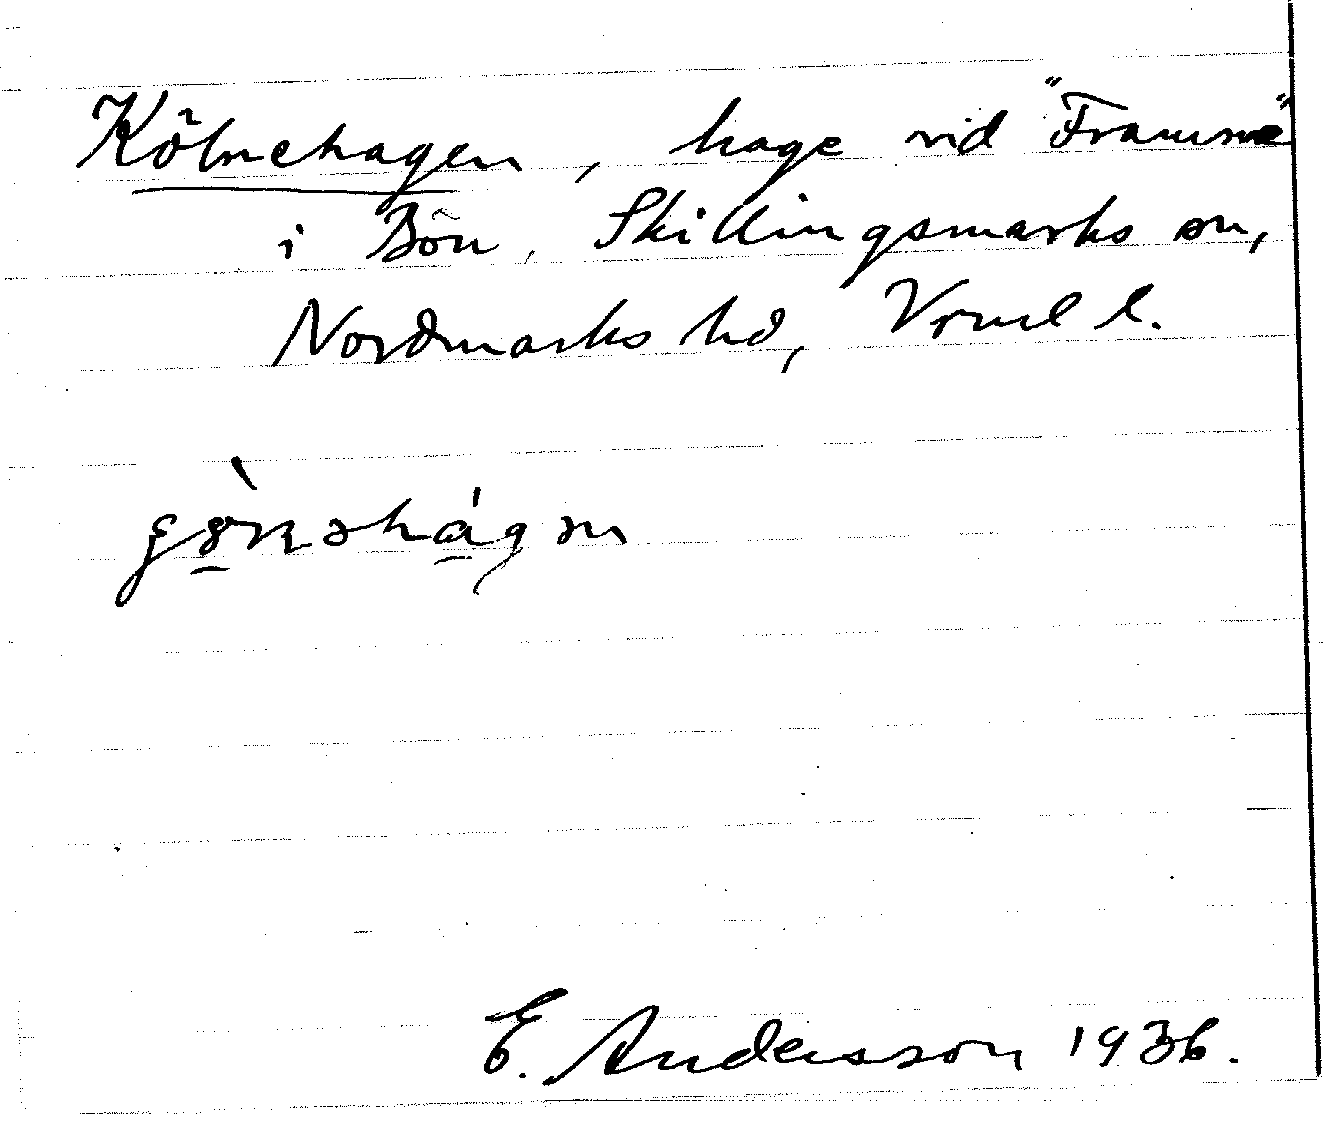 Kölnehagen, hage vid "Framme"
i Bön, Skillingsmarks sn,
Nordmarks hd, Vrml l.
E. Andersson 1936.